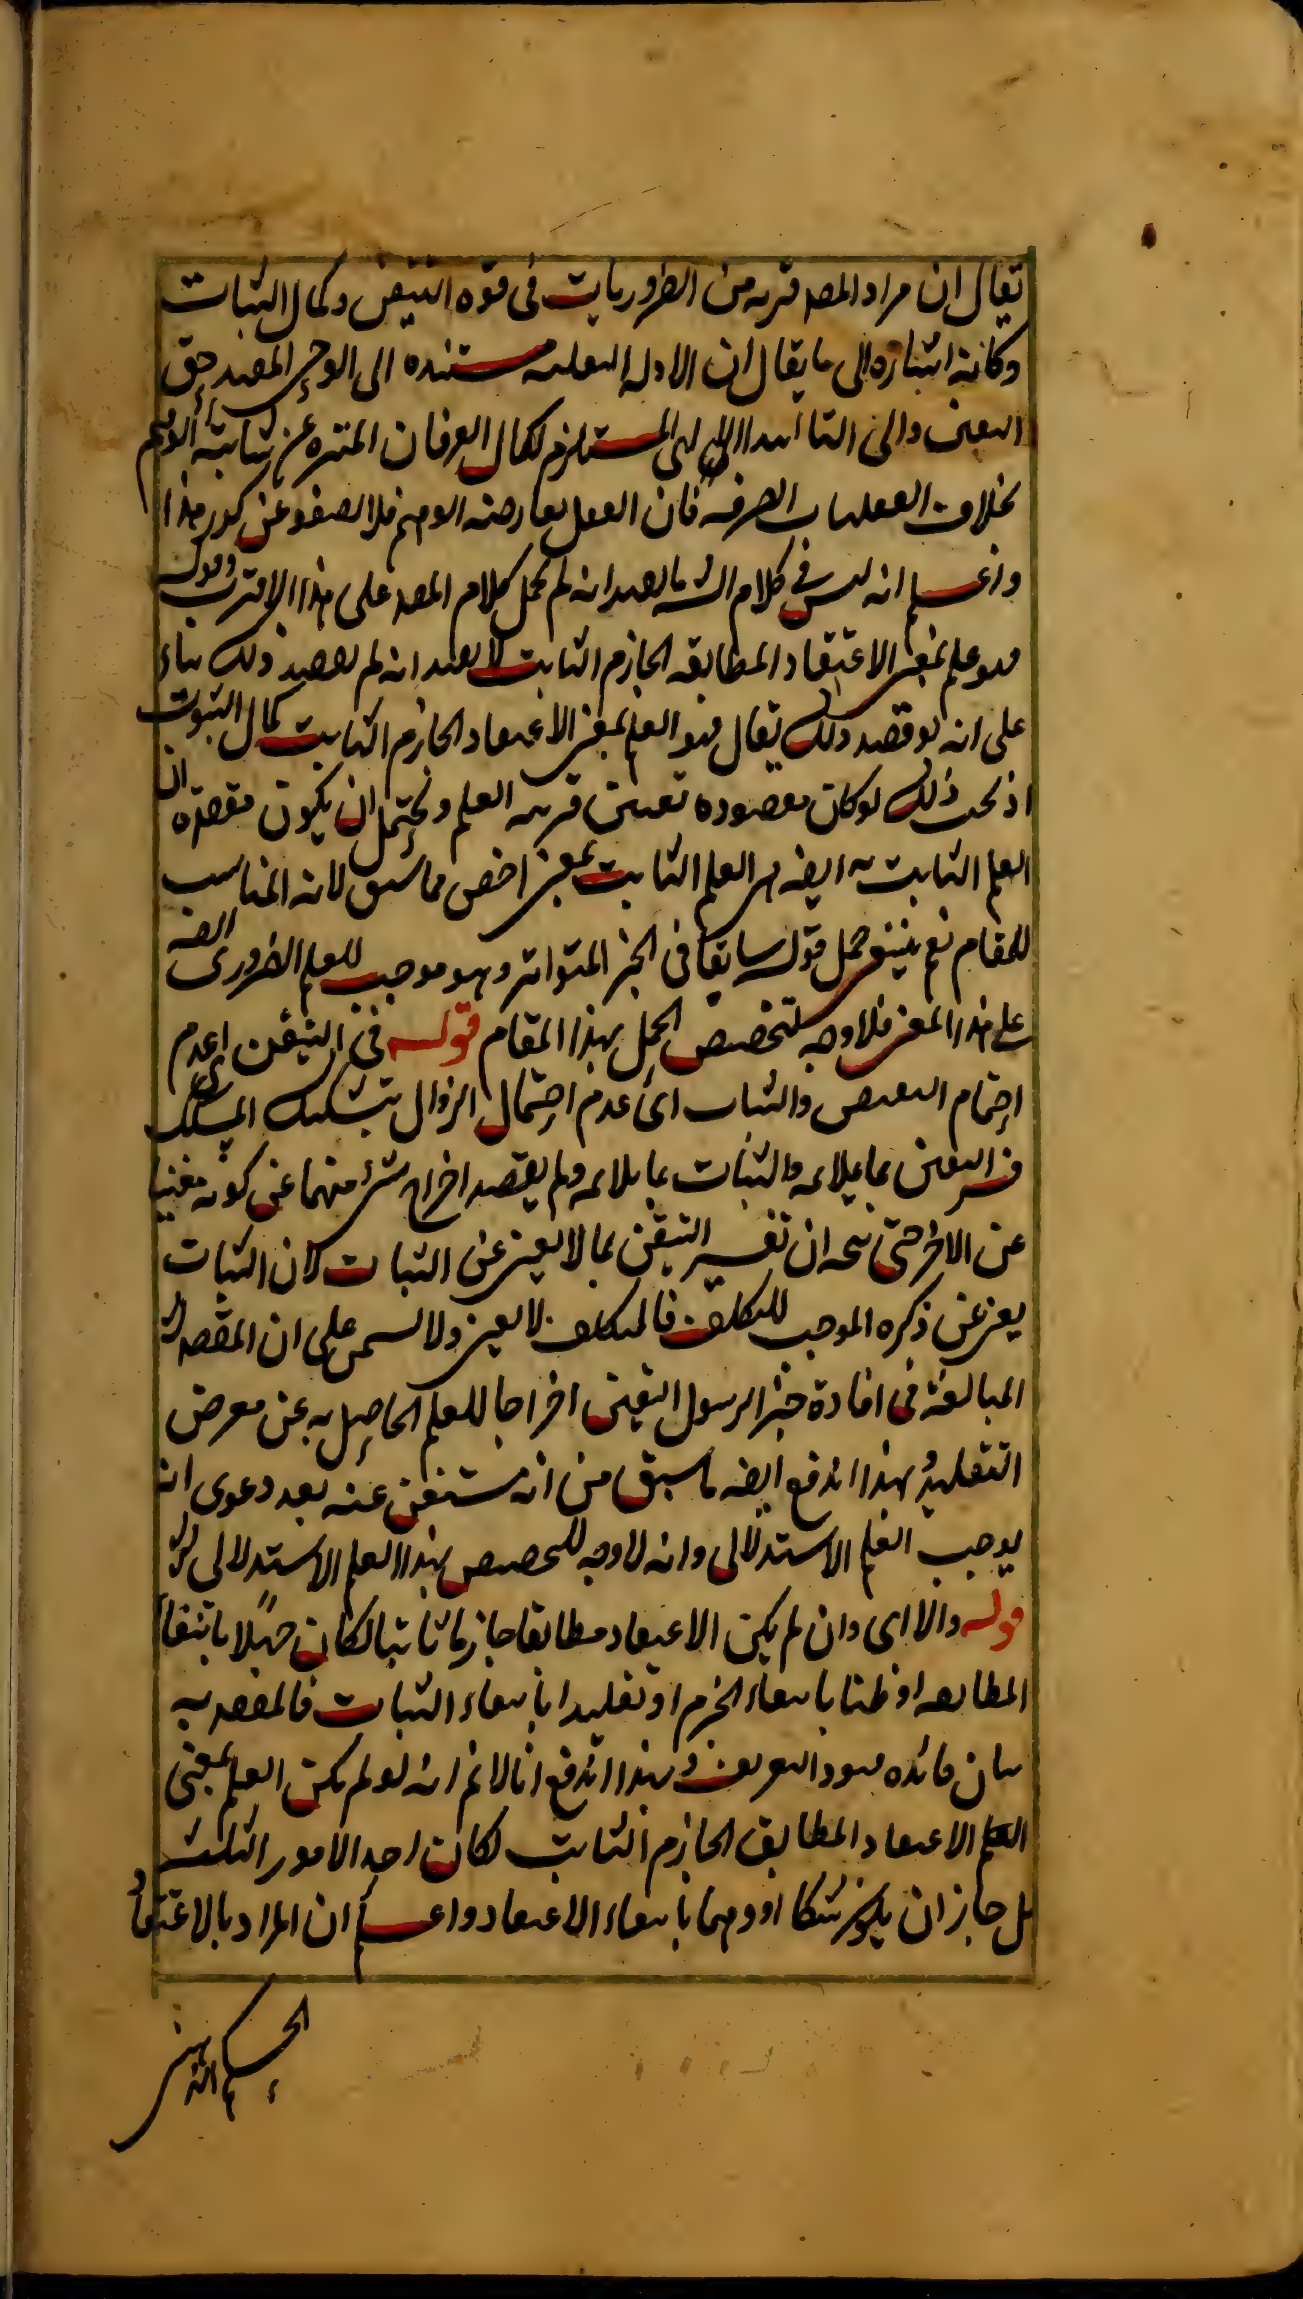 يقال ان مراد المصہ قربه من الضروريات فى قوة التيقن وكمال الثبات
وكانه اشارة الى ما يقال ان الادله النقليه مستنده الى الوحى المفيد حق
اليقين والى التائيد الالهى المستلزم لكمال العرفان المنزه عن شائبة الوهم
بخلاف العقليات الصرفة فان العقل يعارضه الوهم فلا يصفو عن كدر هذا
واعلم انه ليس فى كلام الشه ما يفيد انه لم يحمل كلام المصہ على هذا الاقتراب وقوله
فهو علم بمعنى الاعتقاد المطابق الجازم الثابت لا يفيد انه لم يقصد ذلك بناء
على انه لو قصد ذلك يقال فهو العلم بمعنى الاعتقاد الجازم الثابت كمال الثبوت
اذ يجب ذلك لو كان مقصوده تعيين قربه العلم ويحتمل ان يكون مقصده ان
العلم الثابت به ايضہ هى العلم الثابت بمعنى اخص مما سبق لانه المناسب
للمقام نعم ينبغى حمل قوله سابقا فى الخبر المتواتر وهو موجب للعلم الضرورى ايضہ
على هذا المعنى فلا وجه لتخصيص الحمل بهذا المقام قوله فى التيقن اى عدم
احتمال النقيض والثبات اى عدم احتمال الزوال بتشكيك المشكك
فسر اليقين بما يلائمه والثبات بما يلائمه ولم يقصد اخراج شئ منهما عن كونه مغنيا
عن الاخر حتى يتجه ان تفسير التيقن بما لا يغنى عن الثبات لان الثبات
يغنى عن ذكره الموجب للتكلف فالتكلف لا يغنى ولا يسمن على ان المقصہ
المبالغة فى افادة خبر الرسول اليقين اخراجا للعلم الحاصل به عن معرض
التقليد وبهذا اندفع ايضہ ما سبق من انه مستغن عنه بعد دعوى انه
يوجب العلم الاستدلالى وانه لا وجه لتخصيص بهذا العلم الاستدلالى
قوله والا اى وان لم يكن الاعتقاد مطابقا جازما ثابتا لكان جهلا بانتفاء
المطابقه او ظنا بانتفاء الجزم او تقليدا بانتفاء الثبات فالمقصد به
بيان فائده قيود التعريف وبهذا اندفع انا لا نم انه لو لم يكن العلم بمعنى
الاعتقاد المطابق الجازم الثابت لكان احد الامور الثلث
بل جاز ان يكون شكا او وهما بانتفاء الاعتقاد واعلم ان المراد بالاعتقاد